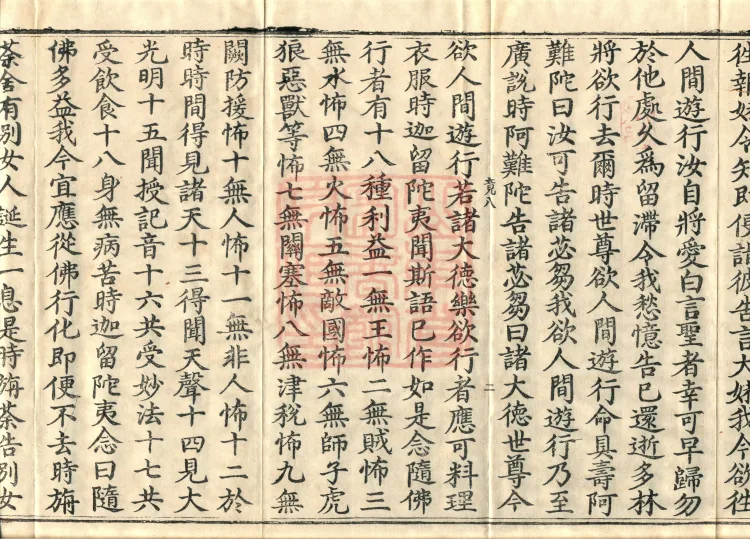 往報好令知即便詣彼告言大姊我今欲往
人間遊行汝自將愛白言聖者幸可早歸勿
於他處久為留滯令我愁憶告已還逝多林
將欲行去爾時世尊欲人間遊行命具壽阿
難陀曰汝可告諸苾芻我欲人間遊行乃至
廣說時阿難陀告諸苾芻曰諸大德世尊今
竟八 二
欲人間遊行若諸大德樂欲行者應可料理
衣服時迦留陀夷聞斯語已作如是念隨佛
行者有十八種利益一無王怖二無賊怖三
無水怖四無火怖五無敵國怖六無師子虎
狼惡獸等怖七無關塞怖八無津稅怖九無
闕防援怖十無人怖十一無非人怖十二於
時時間得見諸天十三得聞天聲十四見大
光明十五聞授記音十六共受妙法十七共
受飲食十八身無病苦時迦留陀夷念曰隨
佛多益我今宜應從佛行化即便不去時旃
荼舍有別女人誕生一息是時旃荼告別女